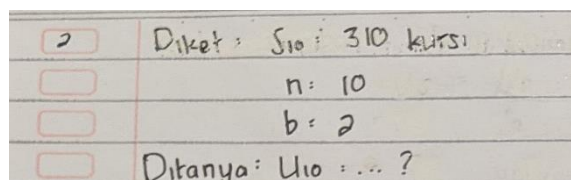 2 Diket : S10 : 310 kursi
n : 10
b : 2
Ditanya : U10 : ... ?